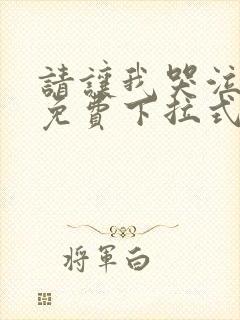 請讓我哭泣
免費下拉式
將軍白